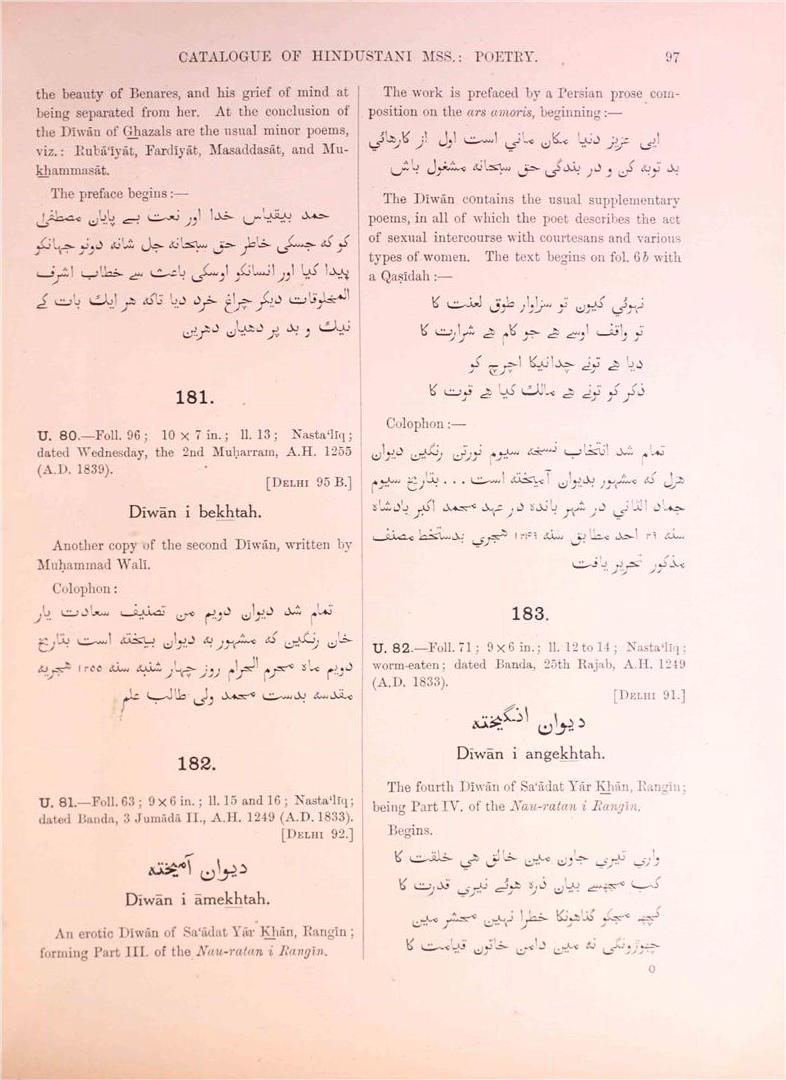 CATALOGUE OF HINDUSTANI MSS.: POETRY. 97
the beauty of Benares, and his grief of mind at
being separated from her. At the conclusion of
the Dīwān of Ghazals are the usual minor poems,
viz.: Rubā‘īyāt, Fardīyāt, Masaddasāt, and Mu-
khammasāt.
The preface begins:—
حمد بيقياس خدا اور نعت بے پايان مصطفیٰ
كو كه جسكي خاطر حق سبحانه جل شانه دونو جہانكو
پيدا كيا اور انسانكو اوسكي باعث سے خطاب اشرف
المخلوقات ديكر چراغ خرد ديا تاكه هر ايك بات كے
نيك و بد پر دهيان دهرين
181.
U. 80.—Foll. 96; 10 × 7 in.; ll. 13; Nasta‘līq;
dated Wednesday, the 2nd Muḥarram, A.H. 1255
(A.D. 1839).
[DELHI 95 B.]
Dīwān i bekhtah.
Another copy of the second Dīwān, written by
Muḥammad Walī.
Colophon:
تمام شد ديوان دويم من تصنيف سعادت يار
خان رنگين كه مشهور به ديوان بيخته است بتاريخ
دويم ماه محرم الحرام روز چہار شنبه سنه ١٢٥٥ هجريه
مقدسه بدست محمد ولي طالب علم
182.
U. 81.—Foll. 63; 9 × 6 in.; ll. 15 and 16; Nasta‘līq;
dated Banda, 3 Jumādā II., A.H. 1249 (A.D. 1833).
[DELHI 92.]
ديوان آميخته
Dīwān i āmekhtah.
An erotic Dīwān of Sa‘ādat Yār Khān, Rangīn;
forming Part III. of the Nau-ratan i Rangīn.
The work is prefaced by a Persian prose com-
position on the ars amoris, beginning:—
ايي عزيز دنيا مكان ماني است اول از كارهائي
بد توبه كن و در بندگي حق سبحانه مشغول باش
The Dīwān contains the usual supplementary
poems, in all of which the poet describes the act
of sexual intercourse with courtesans and various
types of women. The text begins on fol. 6b with
a Qaṣīdah:—
نہوئي كيون تو سزاوار طوق لعنت كا
تو واقف اوسے هے جو كام هے شرارت كا
ديا هے تونے چدانيكا اچرچ كو
ذكر كو تونے هے مالك كيا هے قوت كا
Colophon:—
تمام شد انتخاب نسخه سيوم نورتن رنگين ديوان
هزل كه مشهور بديوان آميخته است ... بتاريخ سيوم
جماد الثاني در شهر بانده در عهد محمد اكبر بادشاه
سنه ٢٩ احد مطابق سنه ١٢٤٩ هجري بدستخط مصنف
مذكور تحرير يافت
183.
U. 82.—Foll. 71; 9 × 6 in.; ll. 12 to 14; Nasta‘līq;
worm-eaten; dated Banda, 25th Rajab, A.H. 1249
(A.D. 1833).
[DELHI 91.]
ديوان انگيخته
Dīwān i angekhtah.
The fourth Dīwān of Sa‘ādat Yār Khān, Rangīn;
being Part IV. of the Nau-ratan i Rangīn.
Begins.
واري تيري جاون مين خالق هي خلقت كا
كب مجهسے بيان ذره هوئے تيري قدرت كا
كچهہ مجكو گناهونكا خطرا نہين محشر مين
چهوڑونگي نه مين دامن خاتون قيامت كا
O